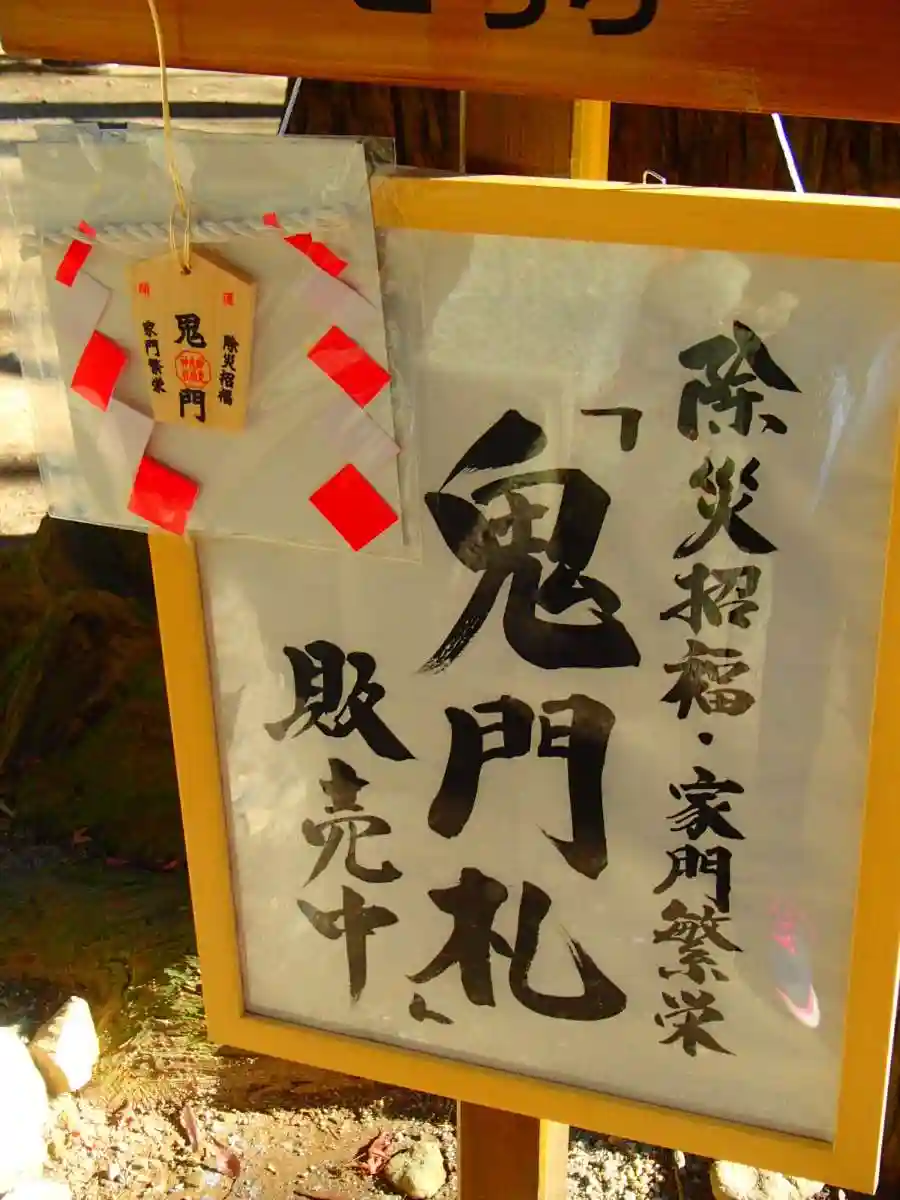 除災招福・家門繁栄
「鬼門札」
販売中
除災招福
鬼門
家門繁栄